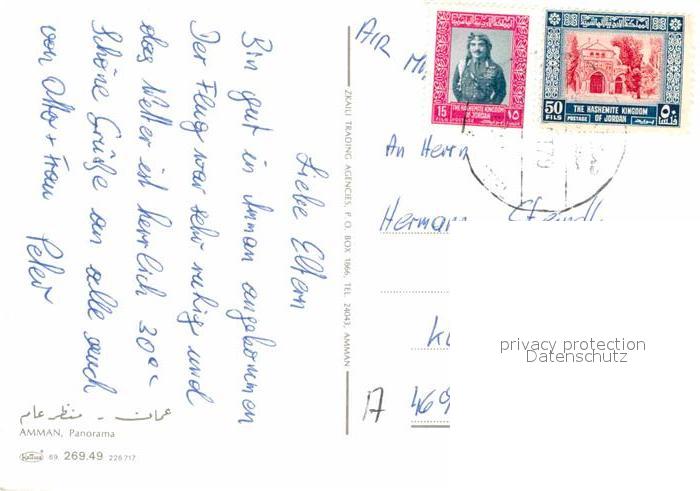 Liebe Eltern
Bin gut in Aman angekommen
Der Flug war sehr ruhig und
das Wetter ist herrlich 30°C
Schöne Grüße an alle auch
von Otto + Frau Peter
عمان - منظر عام
AMMAN, Panorama
69. 269.49 226717
ZKAILI TRADING AGENCIES, P. O. BOX 1866, TEL. 24043, AMMAN
AIR
15 FILS THE HASHEMITE KINGDOM OF JORDAN POSTAGE ١٥
50 FILS THE HASHEMITE KINGDOM OF JORDAN POSTAGE ٥٠
An Herrn
Hermann
privacy protection
Datenschutz
A 469